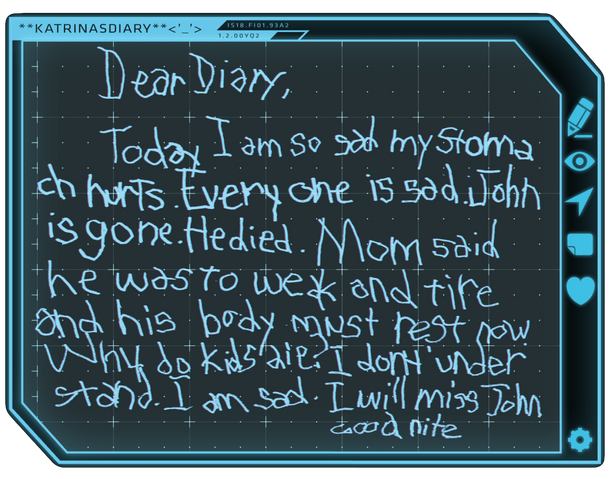 **KATRINASDIARY**<'_'>
IS18.FI01.93A2
1.2.00YQ2
Dear Diary,
Today I am so sad my stoma
ch hurts. Every one is sad. John
is gone. He died. Mom said
he was to weak and tire
and his body must rest now
Why do kids die? I dont under
stand. I am sad. I will miss John
good nite